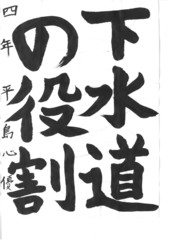 下水道
の役割
四年 平島心優